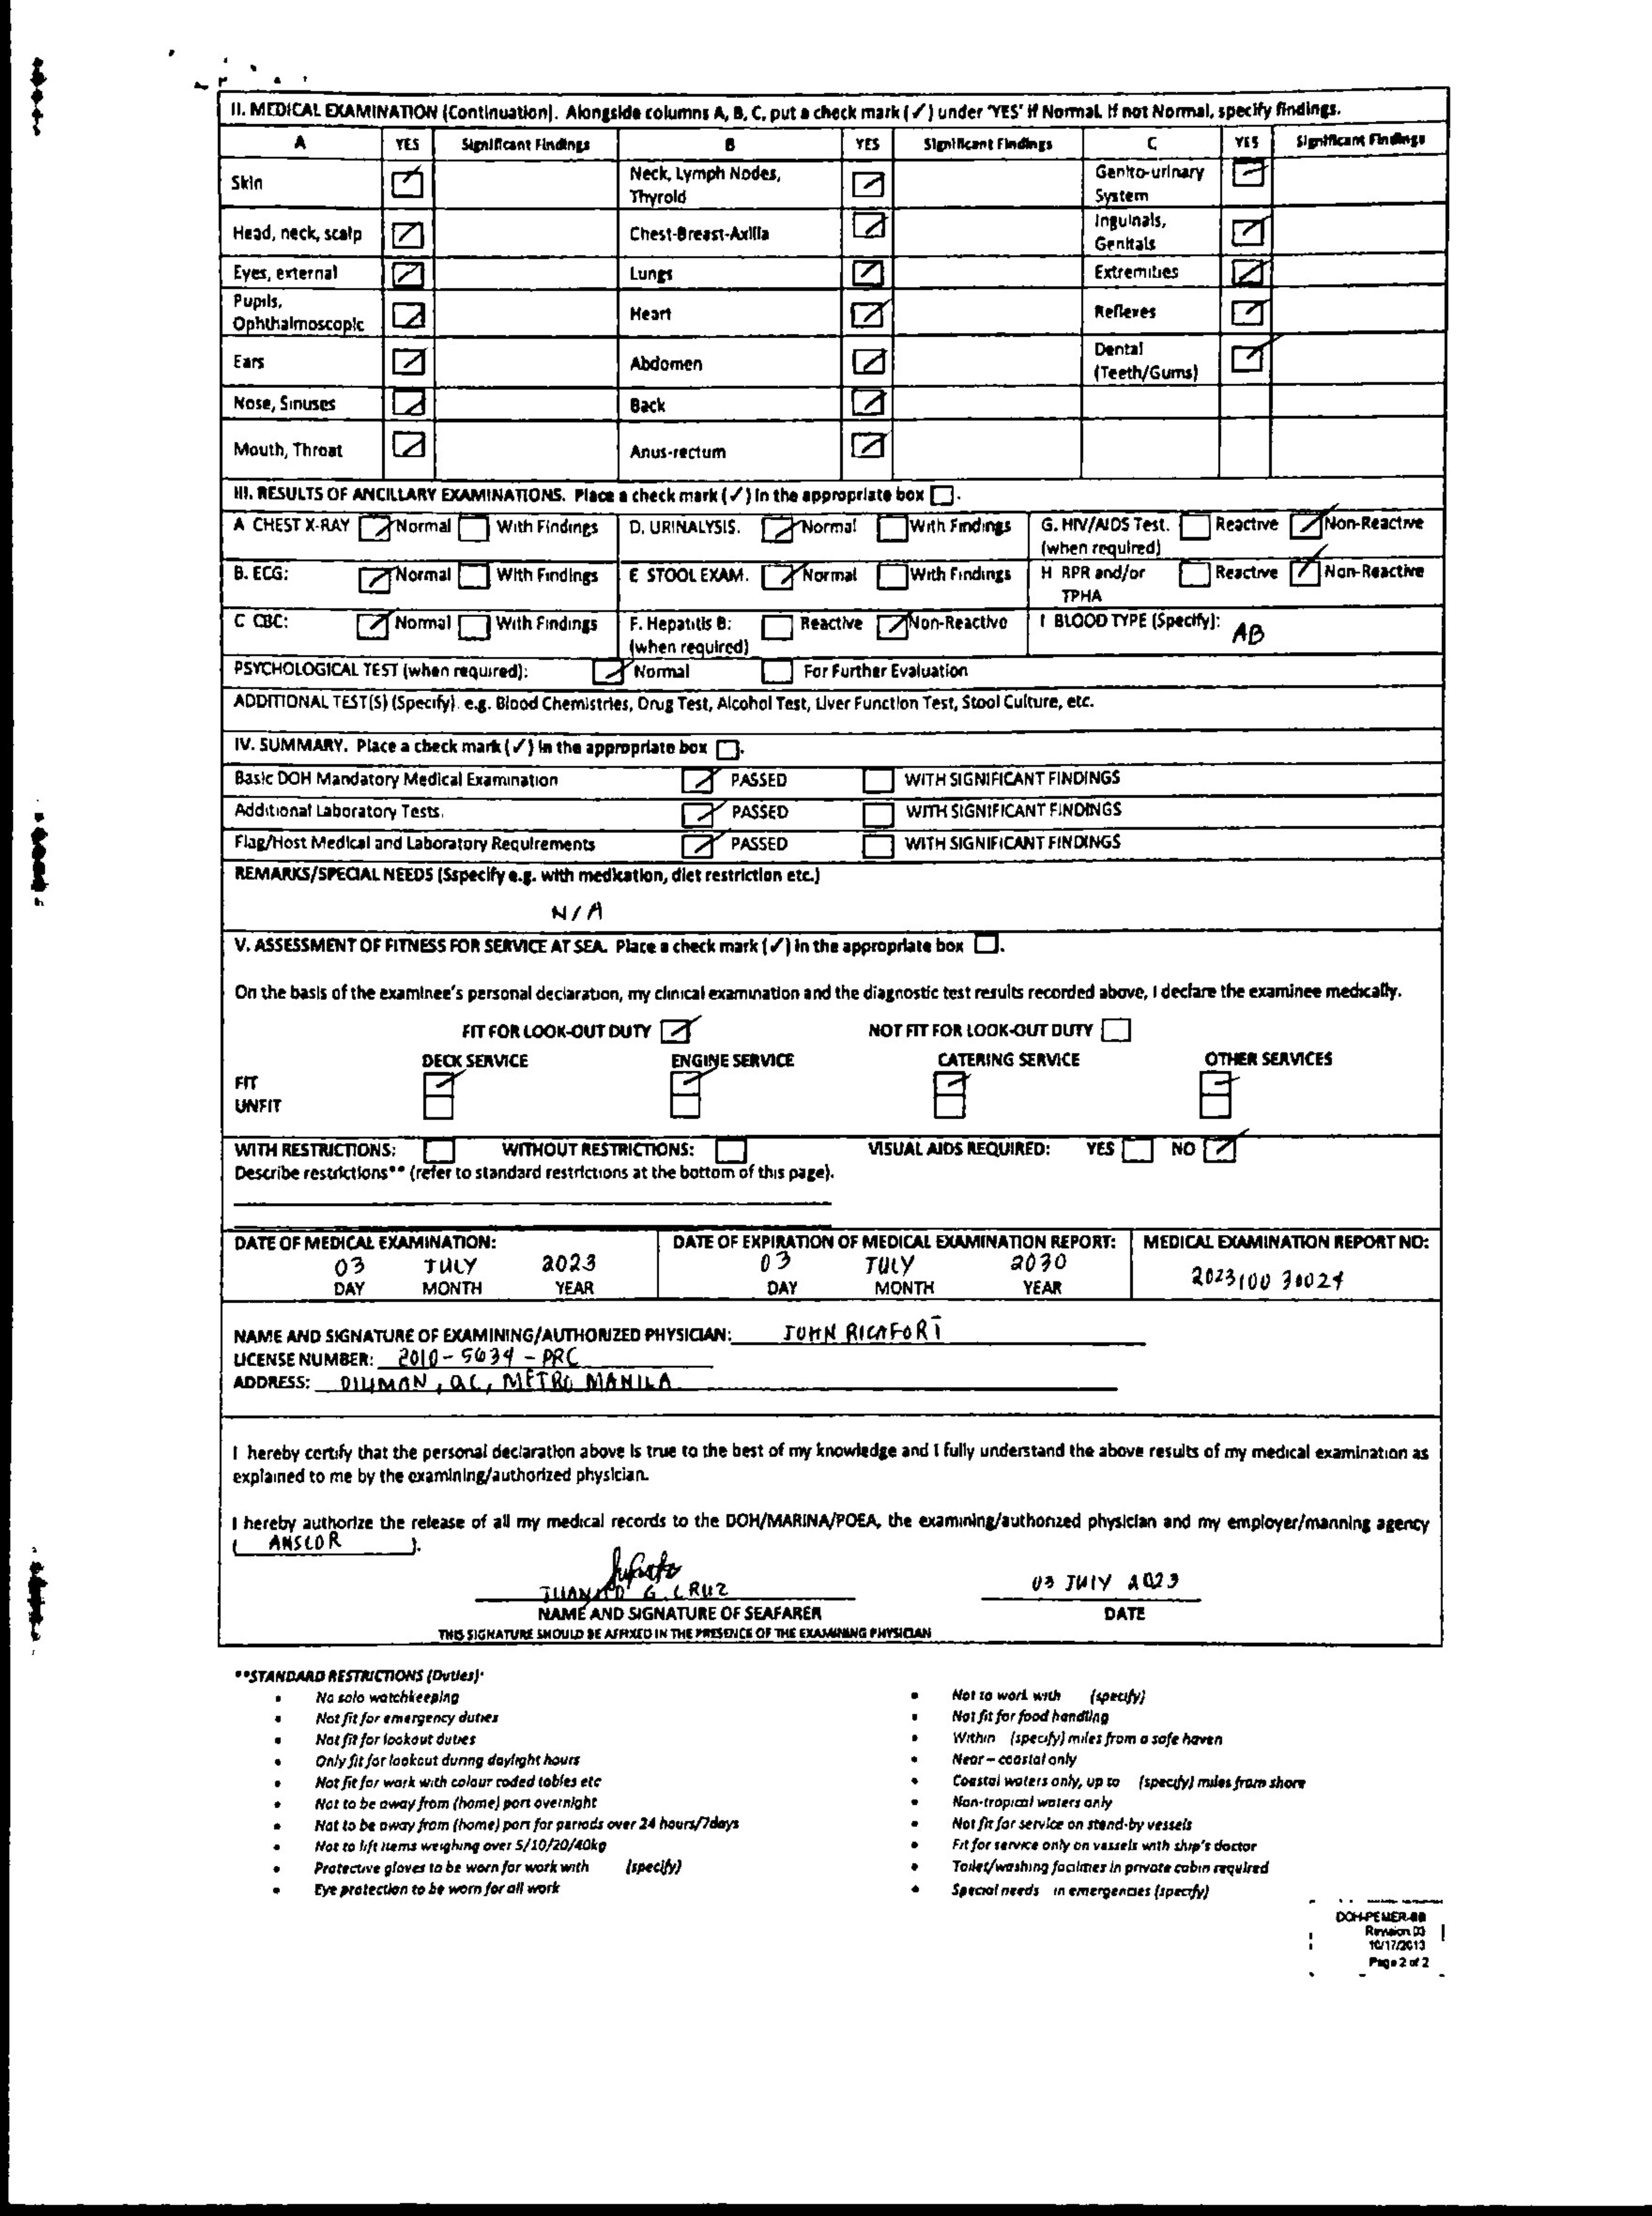 II. MEDICAL EXAMINATION (Continuation). Alongside columns A, B, C, put a check mark (✓) under 'YES' if Normal. If not Normal, specify findings.
A YES Significant Findings B YES Significant Findings C YES Significant Findings
Skin ✓ Neck, Lymph Nodes, Thyroid ✓ Genito-urinary System ✓
Head, neck, scalp ✓ Chest-Breast-Axilla ✓ Inguinals, Genitals ✓
Eyes, external ✓ Lungs ✓ Extremities ✓
Pupils, Ophthalmoscopic ✓ Heart ✓ Reflexes ✓
Ears ✓ Abdomen ✓ Dental (Teeth/Gums) ✓
Nose, Sinuses ✓ Back ✓
Mouth, Throat ✓ Anus-rectum ✓
III. RESULTS OF ANCILLARY EXAMINATIONS. Place a check mark (✓) in the appropriate box ☐.
A CHEST X-RAY ☑ Normal ☐ With Findings D. URINALYSIS. ☑ Normal ☐ With Findings G. HIV/AIDS Test. (when required) ☐ Reactive ☑ Non-Reactive
B. ECG: ☑ Normal ☐ With Findings E STOOL EXAM. ☑ Normal ☐ With Findings H RPR and/or TPHA ☐ Reactive ☑ Non-Reactive
C CBC: ☑ Normal ☐ With Findings F. Hepatitis B: (when required) ☐ Reactive ☑ Non-Reactive I BLOOD TYPE (Specify): AB
PSYCHOLOGICAL TEST (when required): ☑ Normal ☐ For Further Evaluation
ADDITIONAL TEST(S) (Specify). e.g. Blood Chemistries, Drug Test, Alcohol Test, Liver Function Test, Stool Culture, etc.
IV. SUMMARY. Place a check mark (✓) in the appropriate box ☐.
Basic DOH Mandatory Medical Examination ☑ PASSED ☐ WITH SIGNIFICANT FINDINGS
Additional Laboratory Tests. ☑ PASSED ☐ WITH SIGNIFICANT FINDINGS
Flag/Host Medical and Laboratory Requirements ☑ PASSED ☐ WITH SIGNIFICANT FINDINGS
REMARKS/SPECIAL NEEDS (Sspecify e.g. with medication, diet restriction etc.)
N/A
V. ASSESSMENT OF FITNESS FOR SERVICE AT SEA. Place a check mark (✓) in the appropriate box ☐.
On the basis of the examinee's personal declaration, my clinical examination and the diagnostic test results recorded above, I declare the examinee medically.
FIT FOR LOOK-OUT DUTY ☑ NOT FIT FOR LOOK-OUT DUTY ☐
DECK SERVICE ENGINE SERVICE CATERING SERVICE OTHER SERVICES
FIT ☑ ☑ ☑ ☑
UNFIT ☐ ☐ ☐ ☐
WITH RESTRICTIONS: ☐ WITHOUT RESTRICTIONS: ☐ VISUAL AIDS REQUIRED: YES ☐ NO ☑
Describe restrictions** (refer to standard restrictions at the bottom of this page).
DATE OF MEDICAL EXAMINATION: DATE OF EXPIRATION OF MEDICAL EXAMINATION REPORT: MEDICAL EXAMINATION REPORT NO:
03 JULY 2023 03 JULY 2030 202310030024
DAY MONTH YEAR DAY MONTH YEAR
NAME AND SIGNATURE OF EXAMINING/AUTHORIZED PHYSICIAN: JOHN RICAFORT
LICENSE NUMBER: 2010-5634-PRC
ADDRESS: DILIMAN, QC, METRO MANILA
I hereby certify that the personal declaration above is true to the best of my knowledge and I fully understand the above results of my medical examination as
explained to me by the examining/authorized physician.
I hereby authorize the release of all my medical records to the DOH/MARINA/POEA, the examining/authorized physician and my employer/manning agency
( ANSCOR ).
JUANITO G. CRUZ 03 JULY 2023
NAME AND SIGNATURE OF SEAFARER DATE
THIS SIGNATURE SHOULD BE AFFIXED IN THE PRESENCE OF THE EXAMINING PHYSICIAN
**STANDARD RESTRICTIONS (Duties)
• No solo watchkeeping
• Not fit for emergency duties
• Not fit for lookout duties
• Only fit for lookout during daylight hours
• Not fit for work with colour coded tables etc
• Not to be away from (home) port overnight
• Not to be away from (home) port for periods over 24 hours/7days
• Not to lift items weighing over 5/10/20/40kg
• Protective gloves to be worn for work with (specify)
• Eye protection to be worn for all work
• Not to work with (specify)
• Not fit for food handling
• Within (specify) miles from a safe haven
• Near – coastal only
• Coastal waters only, up to (specify) miles from shore
• Non-tropical waters only
• Not fit for service on stand-by vessels
• Fit for service only on vessels with ship's doctor
• Toilet/washing facilities in private cabin required
• Special needs in emergencies (specify)
DOH-PEMER-
Revision 03
10/17/2013
Page 2 of 2